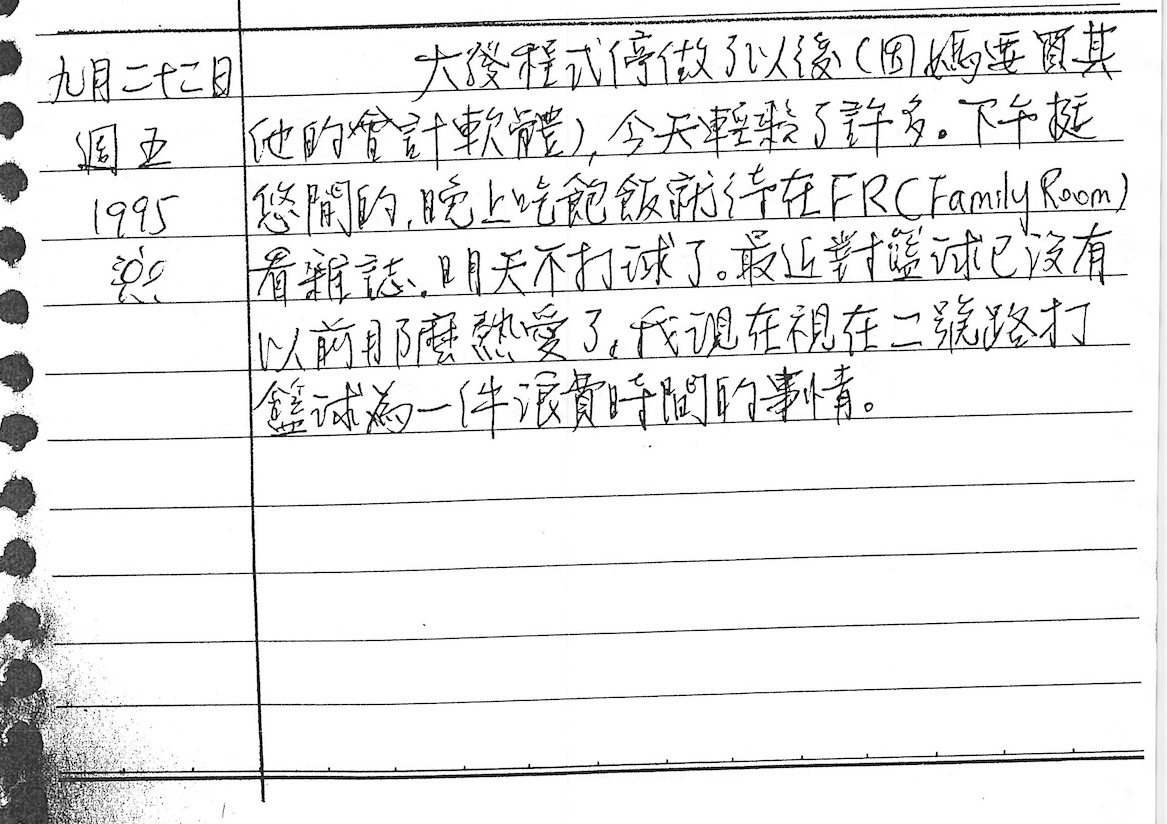 九月二十二日
週五
1995
大發程式停做了以後(因媽要買其
他的會計軟體),今天輕鬆了許多。下午挺
悠閒的,晚上吃飽飯就待在FR(Family Room)
看雜誌,明天不打球了。最近對籃球已沒有
以前那麼熱愛了,我現在視在二號路打
籃球為一件浪費時間的事情。